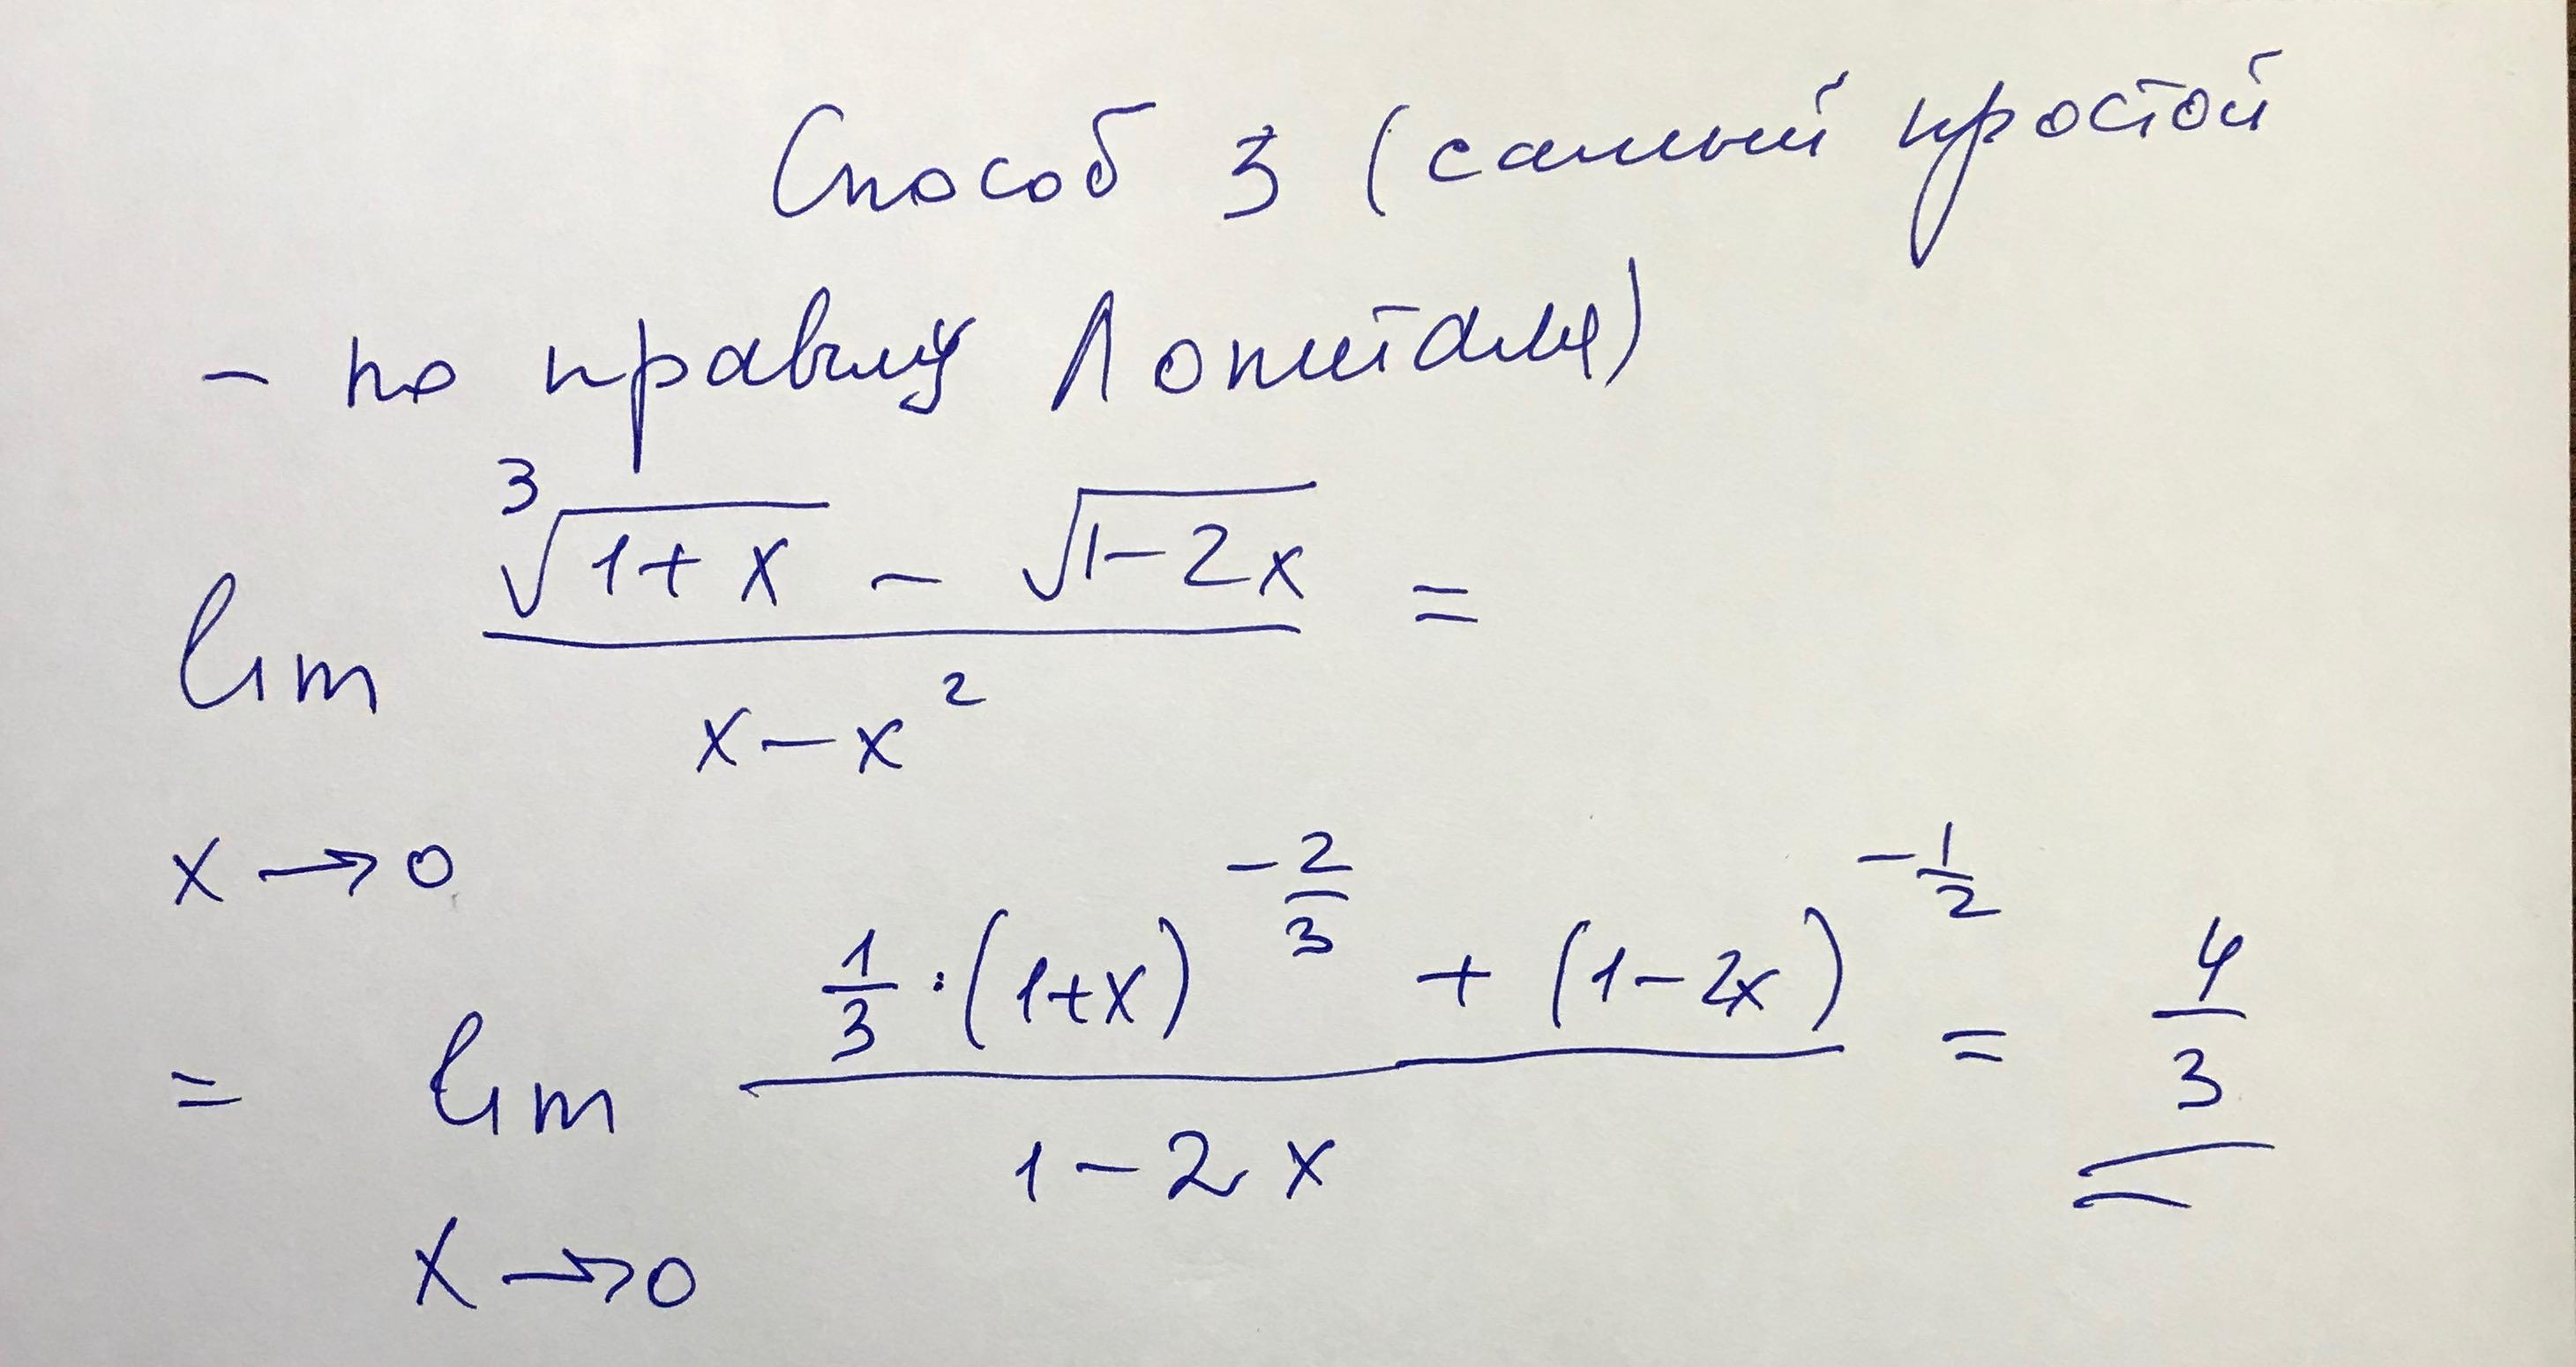 Способ 3 (самый простой
- по правилу Лопиталя)
lim ∛(1+x) - √(1-2x) / x-x² =
x→0
= lim 1/3·(1+x)^(-2/3) + (1-2x)^(-1/2) / 1-2x = 4/3
x→0